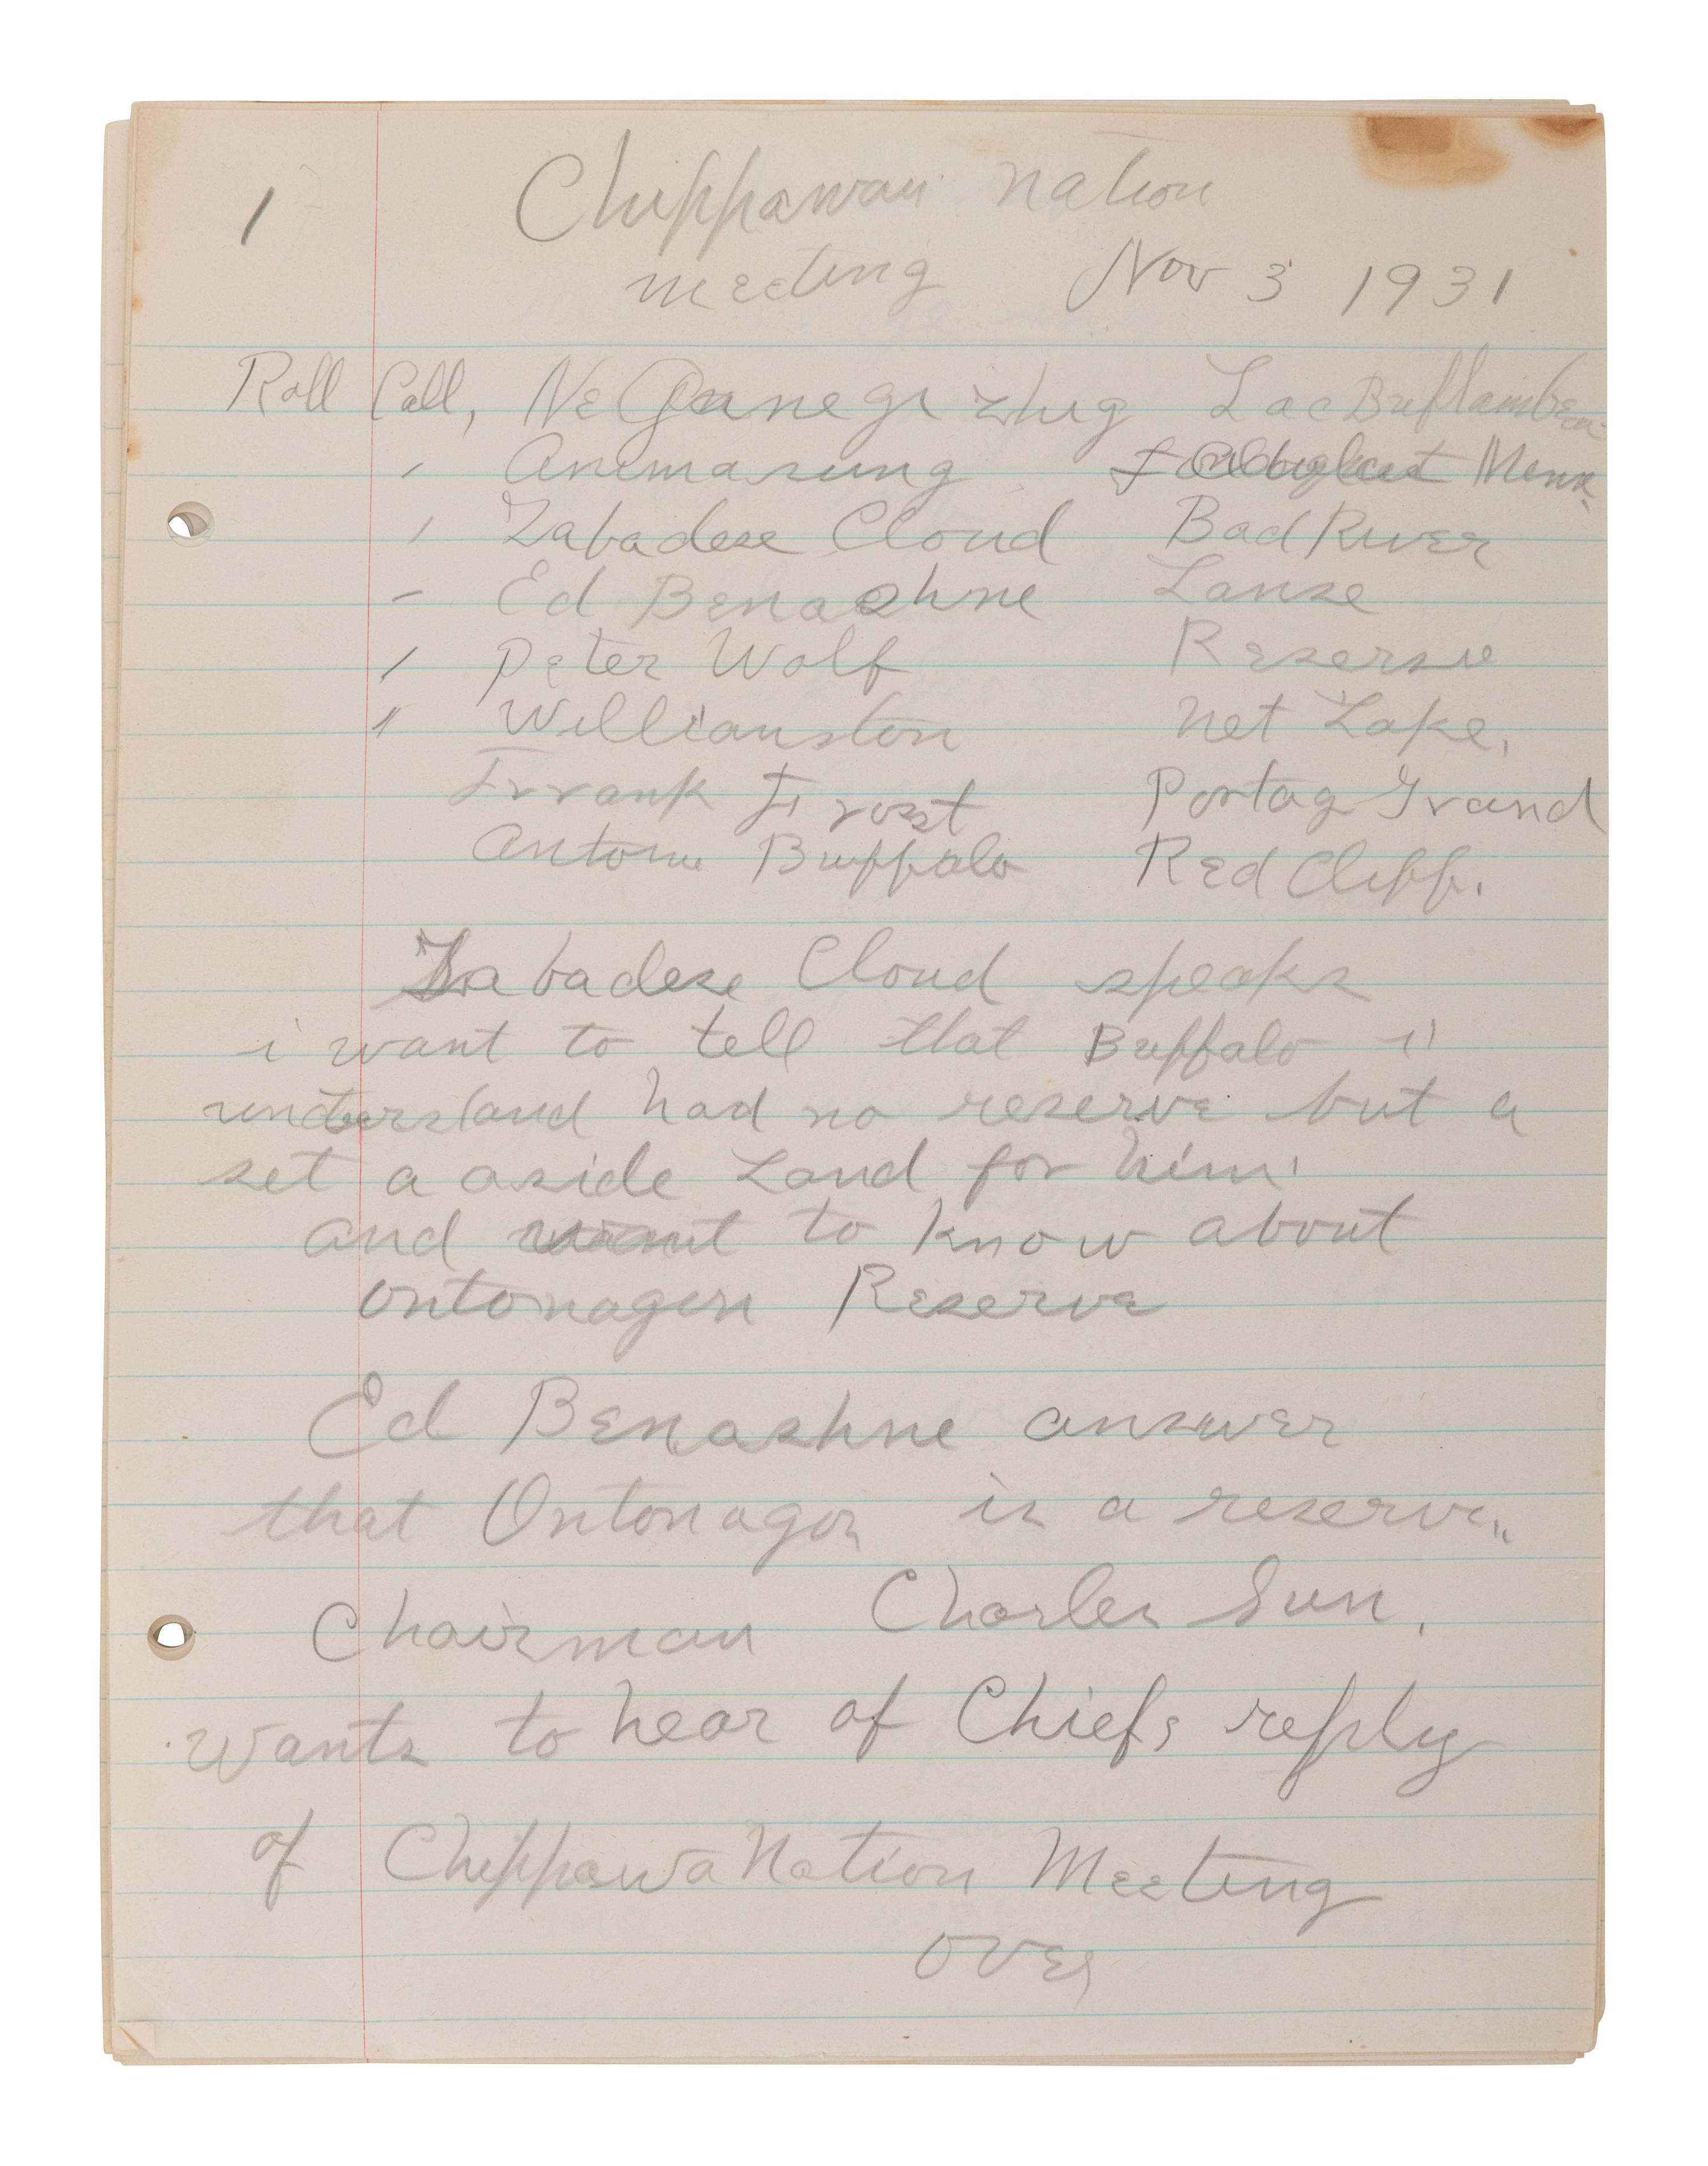 1
Chippawau nation
meeting Nov 3 1931
Roll Call, NeGanegizhig Lac Buflambeau
Animasung Menn.
Zabadese Cloud Bad River
Ed Benashne Lanse
Peter Wolf Reserve
Willianston Net Lake,
Frrank Frost Portag Grand
Antoine Buffalo Red Cliff.
Zabadese Cloud speaks
i want to tell that Buffalo i
understand had no reserve but a
set a aside Land for him
and want to know about
ontonagen Reserve
Ed Benashne answer
that Ontonagon is a reserve"
Chairman Charles Sun.
wants to hear of Chiefs reply
of Cheppawa Nation Meeting
over